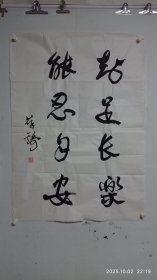 知足长樂
能忍自安
2025.10.02 22:19